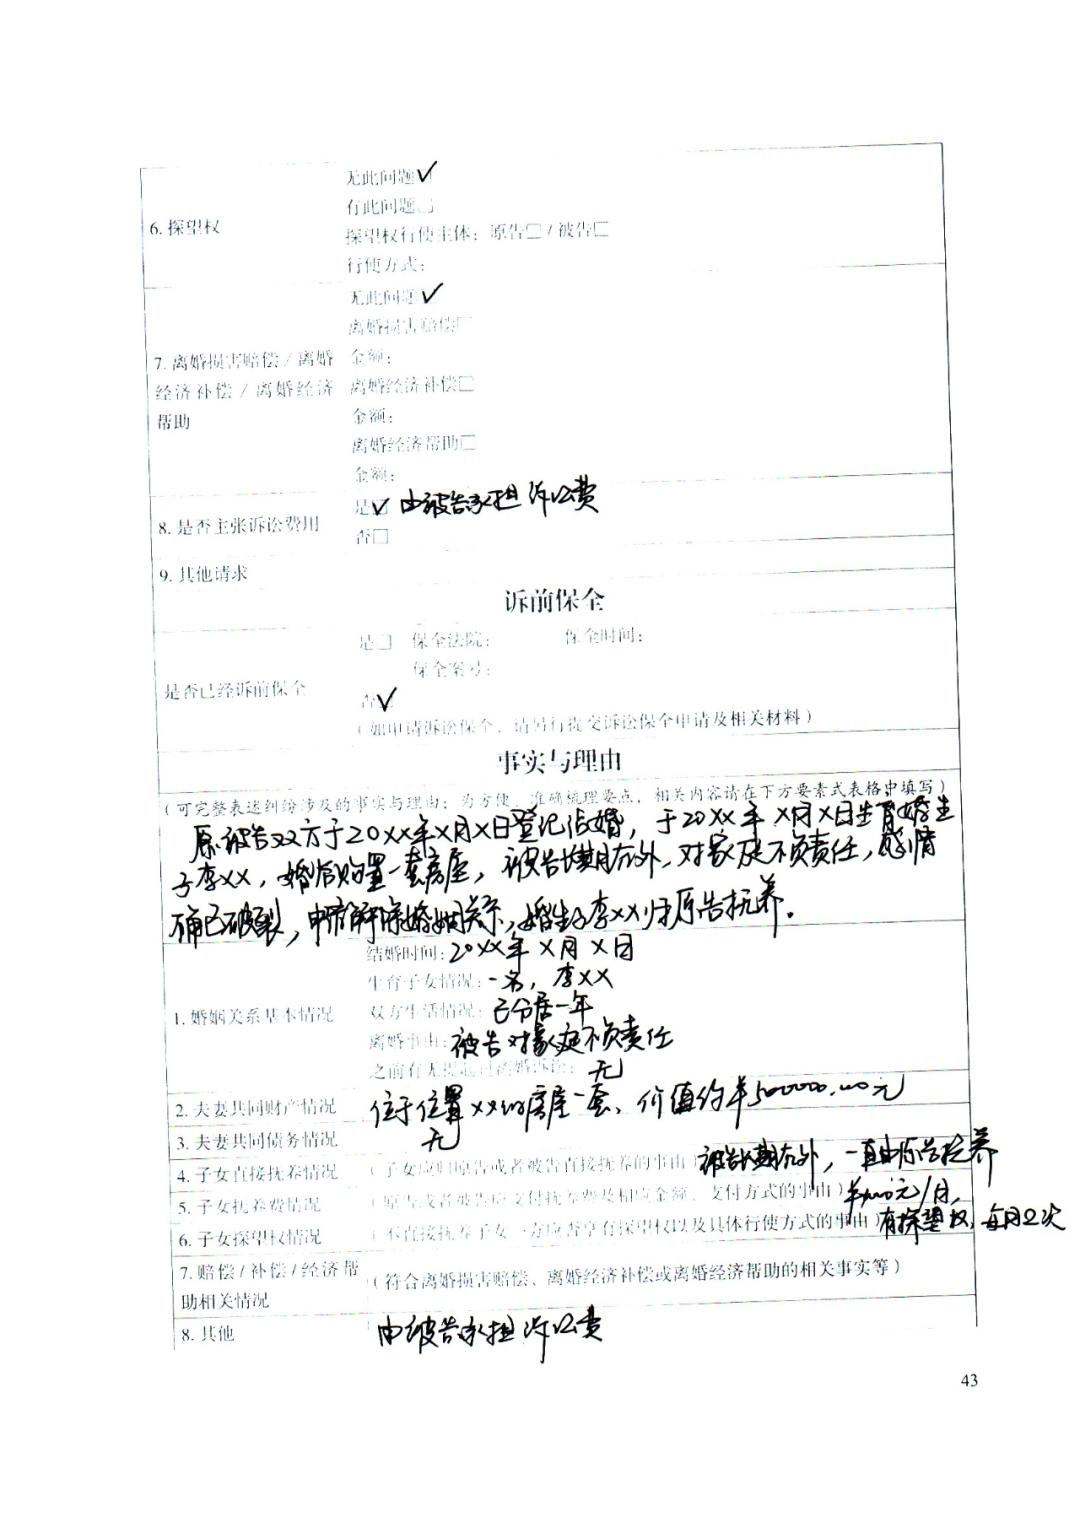 无此问题✓
有此问题□
6. 探望权
探望权行使主体：原告□ / 被告□
行使方式：
无此问题✓
离婚损害赔偿□
7. 离婚损害赔偿 / 离婚
金额：
经济补偿 / 离婚经济
离婚经济补偿□
帮助
金额：
离婚经济帮助□
金额：
是☑ 由被告承担诉讼费
8. 是否主张诉讼费用
否□
9. 其他请求
诉前保全
是□ 保全法院： 保全时间：
保全案号：
是否已经诉前保全
否✓
（如申请诉讼保全，请另行提交诉讼保全申请及相关材料）
事实与理由
（可完整表述纠纷涉及的事实与理由；为方便、准确梳理要点，相关内容请在下方要素式表格中填写）
原、被告双方于20XX年X月X日登记结婚，于20XX年X月X日生育婚生
子李XX，婚后购置一套房屋，被告长期在外，对家庭不负责任，感情
确已破裂，申请解除婚姻关系，婚生子李XX归原告抚养。
结婚时间：20XX年X月X日
生育子女情况：一名，李XX
1. 婚姻关系基本情况
双方生活情况：已分居一年
离婚事由：被告对家庭不负责任
之前有无提起过离婚诉讼：无
2. 夫妻共同财产情况 位于位置XX的房屋一套，价值约¥500000.00元
3. 夫妻共同债务情况 无
4. 子女直接抚养情况 （子女应归原告或者被告直接抚养的事由）被告长期在外，一直由原告抚养
5. 子女抚养费情况 （原告或者被告应支付抚养费及相应金额、支付方式的事由） 元/月，
6. 子女探望权情况 （不直接抚养子女一方应否享有探望权以及具体行使方式的事由）有探望权，每月2次
7. 赔偿 / 补偿 / 经济帮
助相关情况
（符合离婚损害赔偿、离婚经济补偿或离婚经济帮助的相关事实等）
8. 其他 由被告承担诉讼费
43